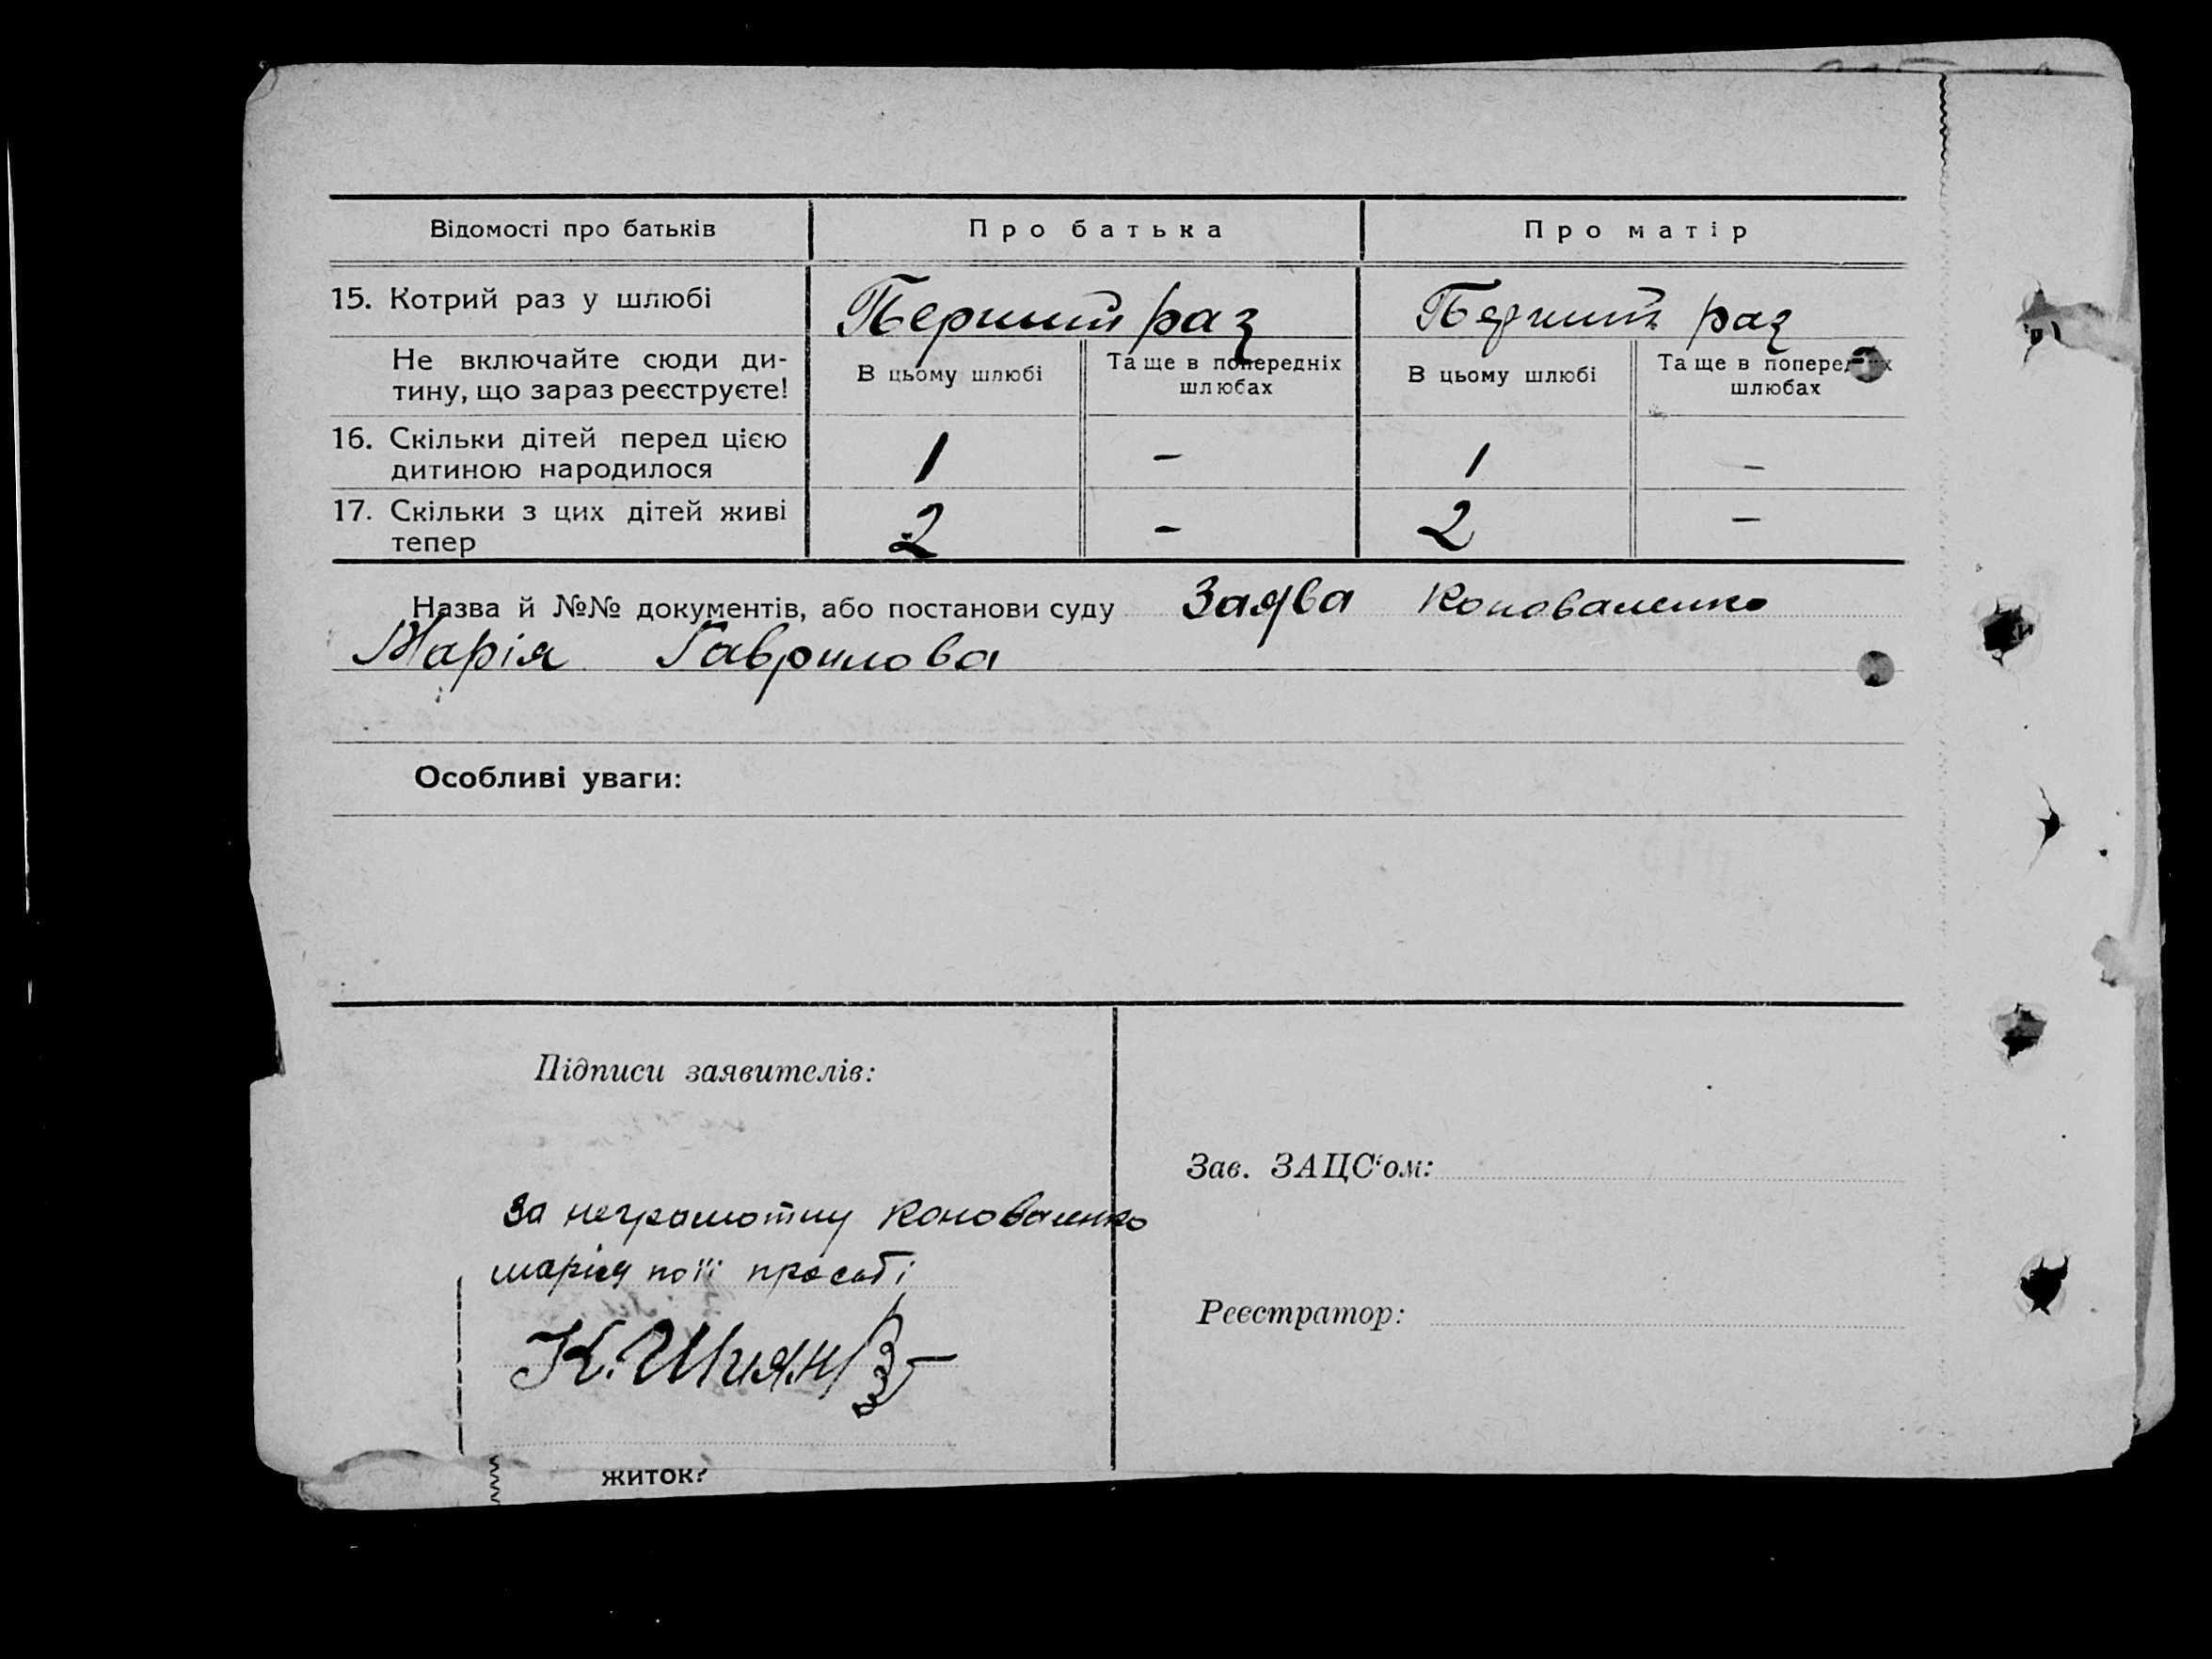 Відомості про батьків Про батька Про матір
15. Котрий раз у шлюбі Перший раз Перший раз
Не включайте сюди ди-
тину, що зараз реєструєте!
В цьому шлюбі Та ще в попередніх
шлюбах
В цьому шлюбі Та ще в попередніх
шлюбах
16. Скільки дітей перед цією
дитиною народилося 1 – 1 –
17. Скільки з цих дітей живі
тепер 2 – 2 –
Назва й №№ документів, або постанови суду Заява Коноваленко
Марія Гаврилова
Особливі уваги:
Підписи заявителів:
За неграмотну Коноваленко
марія по її просьбі
К. Шиян
Зав. ЗАЦС'ом:
Реєстратор:
житок?